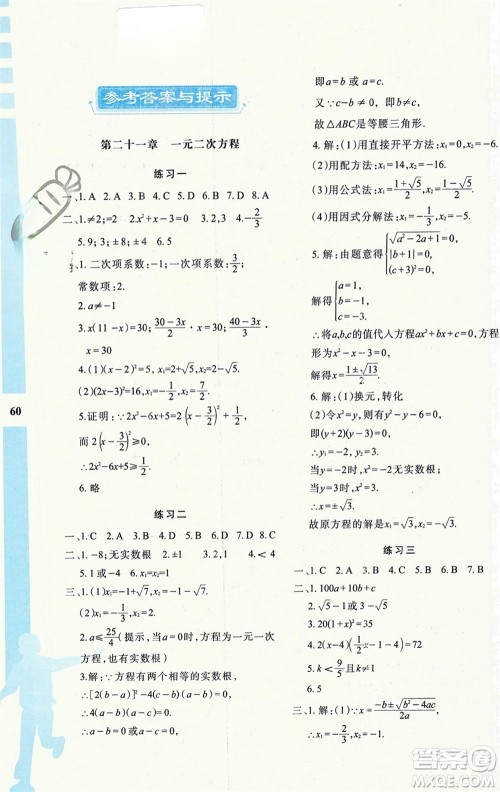 参考答案与提示
第二十一章 一元二次方程
练习一
一、1. A 2. A 3. C 4. C 5. B 6. D 7. B
二、1.≠2;=2 2. x²-6=0 3.2 4.-2/3
5.9; 3; ±8; ±4 6.5
1.二次项系数:-1;一次项系数:3/2;
常数项:2.
2.a≠-1
3.x(11-x)=30;(30-3x)/2;x(30-3x)/2
x=30
4.(1)(x-2)²=0.
(2)(2x-3)²=16,x=7/2或-1/2.
5.证明:∵2x²-6x+5=2(x-3/2)²+1/2,
而2(x-3/2)²≥0,
∴2x²-6x+5≥1/2>0.
6.略
练习二
一、1.C 2.A 3.D 4.A 5.C 6.D 7.D
二、1.-8;无实数根 2.±1 3.-1/4 4.<4
5.1或-5
三、1.(1)x₁=-1+√7,x₂=-1-√7.
(2)x₁=-1/3,x₂=-2.
2.a≤25/4(提示,当a=0时,方程为一元一次
方程,也有实数根)
3.解:∵方程有两个相等的实数根,
∴[2(b-c)]²-4(a-b)(b-c)=0,
∴4(b-c)(a-c)=0,
∴a-c=0,或b-c=0,
即a=b或a=c.
又∵c-b≠0,
故△ABC是等腰三角形.
4.解:(1)用直接开平方法:x₁=0,x₂=-1.
(2)用配方法:x₁=14,x₂=-16.
(3)用公式法:x₁=(1+√5)/2,x₂=(1-√5)/2.
(4)用因式分解法:x₁=-4,x₂=-6.
5.解:由题意得{√(a²-2a+1)=0,
|b+1|=0,
(c+3)²=0,
解得{a=1,
b=-1,
c=-3,
∴将a,b,c的值代入方程ax²+bx+c=0,方程
形为x²-x-3=0.
解得x=(1±√13)/2.
6.解:(1)换元,转化
(2)令x²=y,则原方程化为y²-y-6=0,
∴y₁=-2,y₂=3.
当y=-2时,无实数根;
当y=3时,x=±√3.
故原方程的解是x₁=√3,x₂=-√3.
练习三
一、1.C 2.D 3.B 4.B 5.D 6.C
二、1.100a+10b+c
2.√5
3.20(1+x)²=35
4.2(x-1/3)(x+3)=0
5.k<9/5且k≠1
6.5
三、1.解:(1)不正确,x=(-b±√(b²-4ac))/2a,
∴x₁=-1/3,x₂=-1.
60